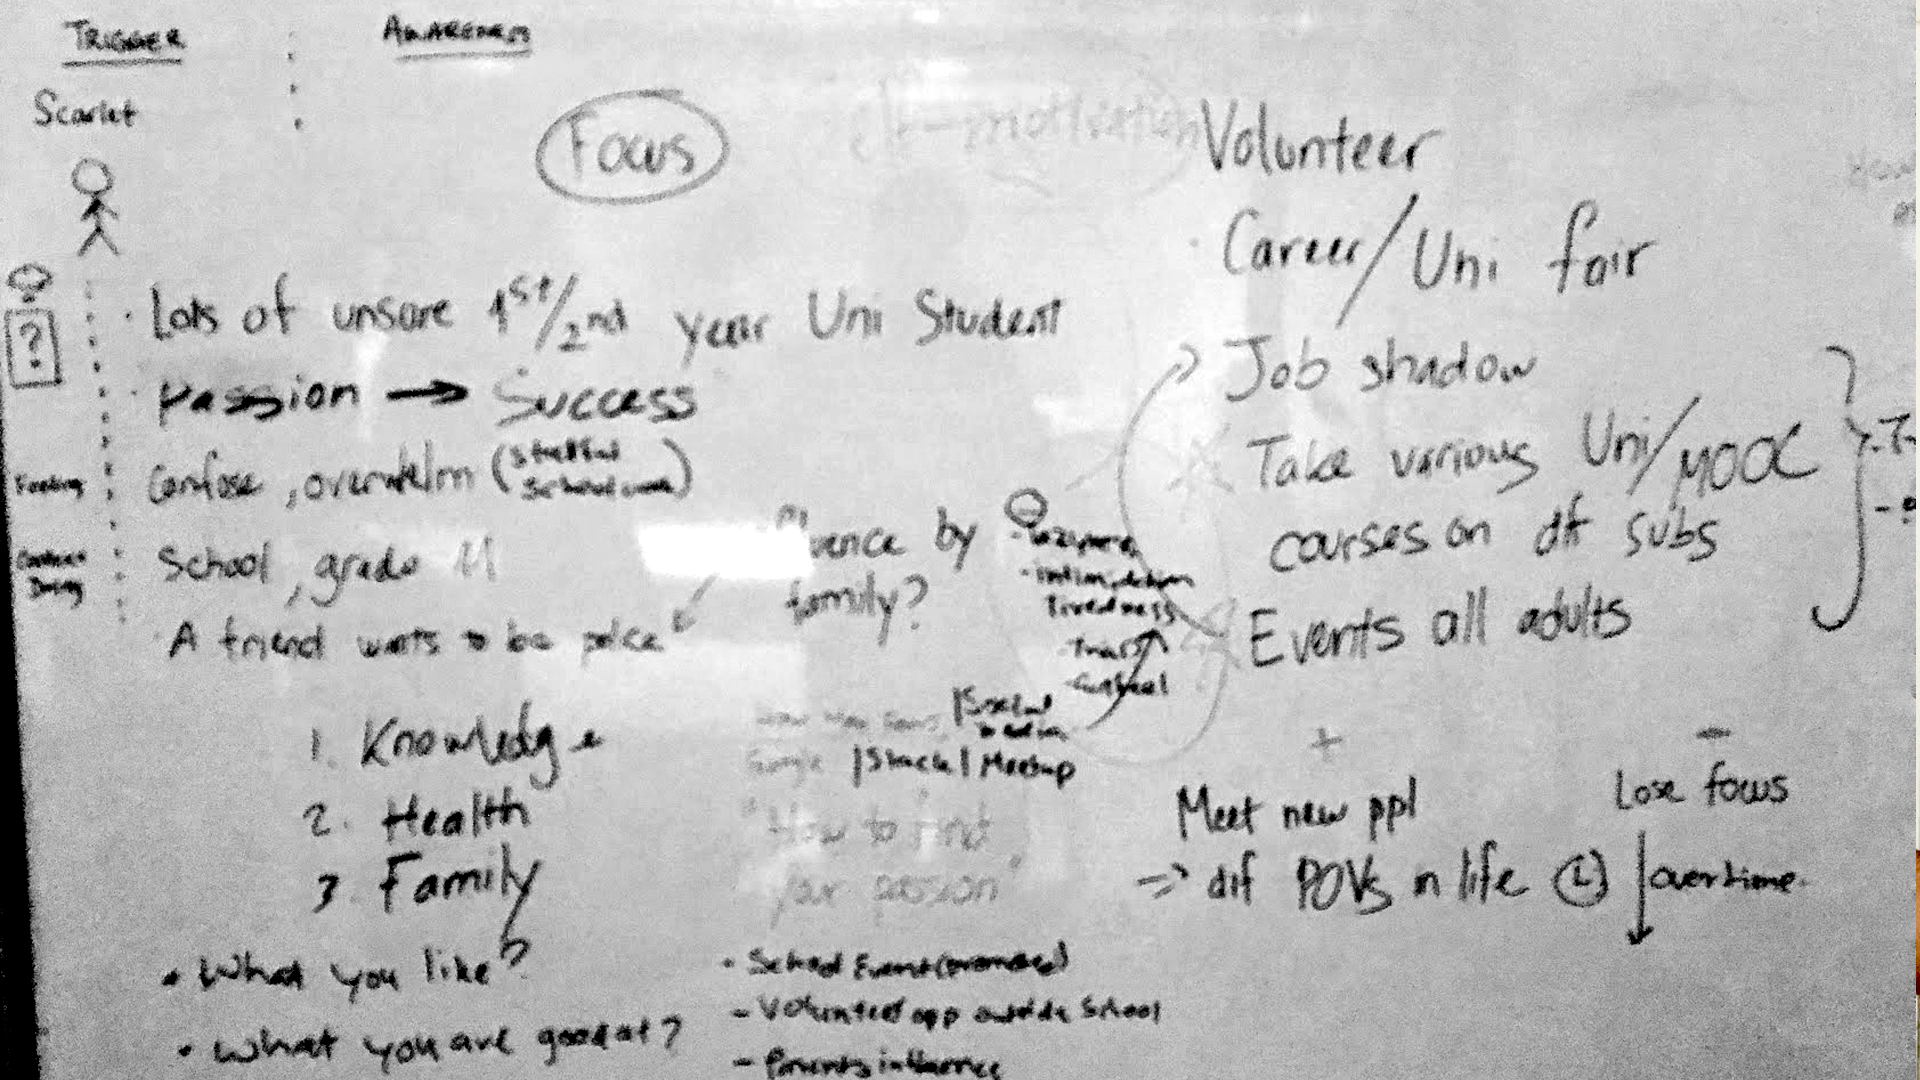 TRIGGER
AWARENESS
Scarlet
Focus
motivation
?
• Lots of unsure 1st/2nd year Uni Student
• Passion → Success
Confuse, overwhelm (
School, grade 11
A friend wants to be police
by
family?
- intimidation
tiredness
1. Knowledge
2. Health
3. Family
|Social
media
Google |Slack| Meetup
"How to find
your passion"
• What you like?
• What you are good at?
- School Event (promoted)
- Volunteer opp outside School
- Parents influence
Volunteer
• Career/Uni fair
Job shadow
Take various Uni/MOOC
courses on df subs
Events all adults
+
Meet new ppl
=> dif POVs in life
-
Lose focus
overtime